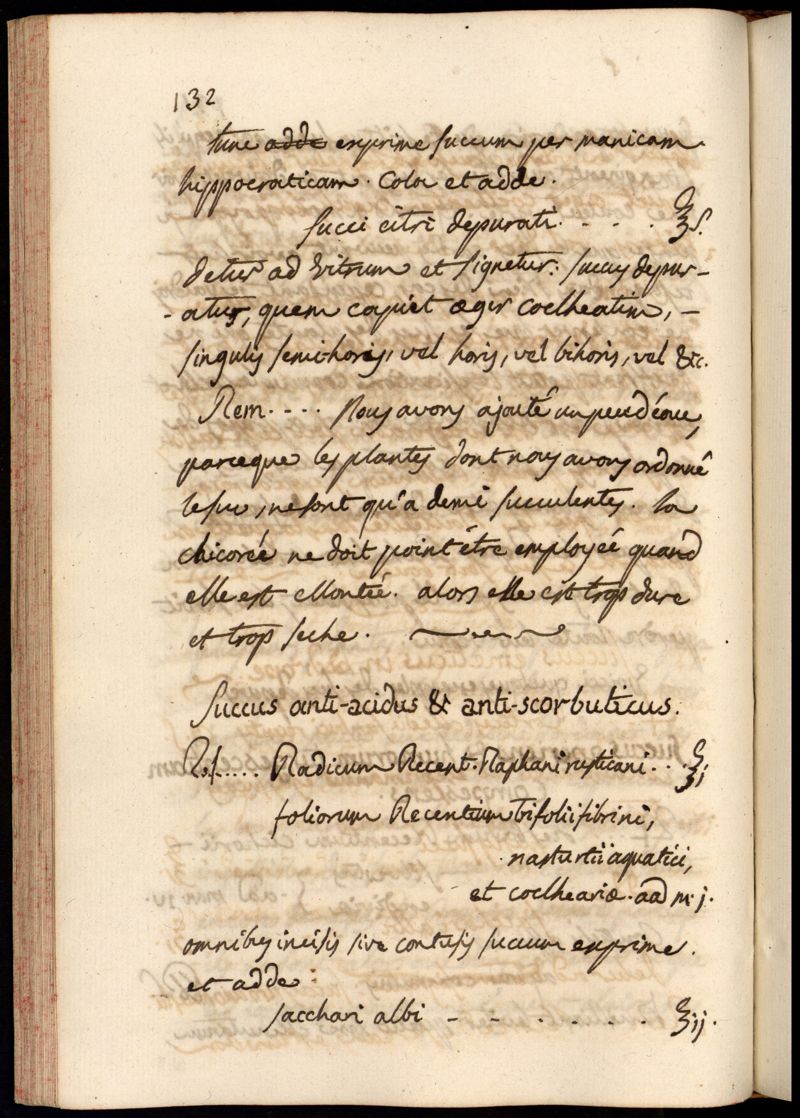 132
tunc adde exprime succum per manicam
hippocraticam. Cola et adde.
succi citri depurati. . . . ℥ s.
detur ad vitrum et signetur: succus depur-
-atus, quem capiet æger coclheatim, -
singulis semihoris, vel horis, vel bihoris, vel &c.
Rem. . . . Nous avons ajouté un peu d'éoue,
parceque les plantes dont nous avons ordonné
le suc, ne sont qu'a demi succulentes. la
chicorée ne doit point être employée quand
elle est montée. alors elle est trop dure
et trop seche.
Succus anti-acidus & anti-scorbuticus.
R./..... Radicum Recent. Raphani rusticani . . ℥ j
foliorum Recentium trifolii fibrini,
nasturtii aquatici,
et coclheariæ. aad m. j.
omnibus incisis sive contusis succum exprime.
et adde:
sacchari albi - - . . . . . ℥ ij.